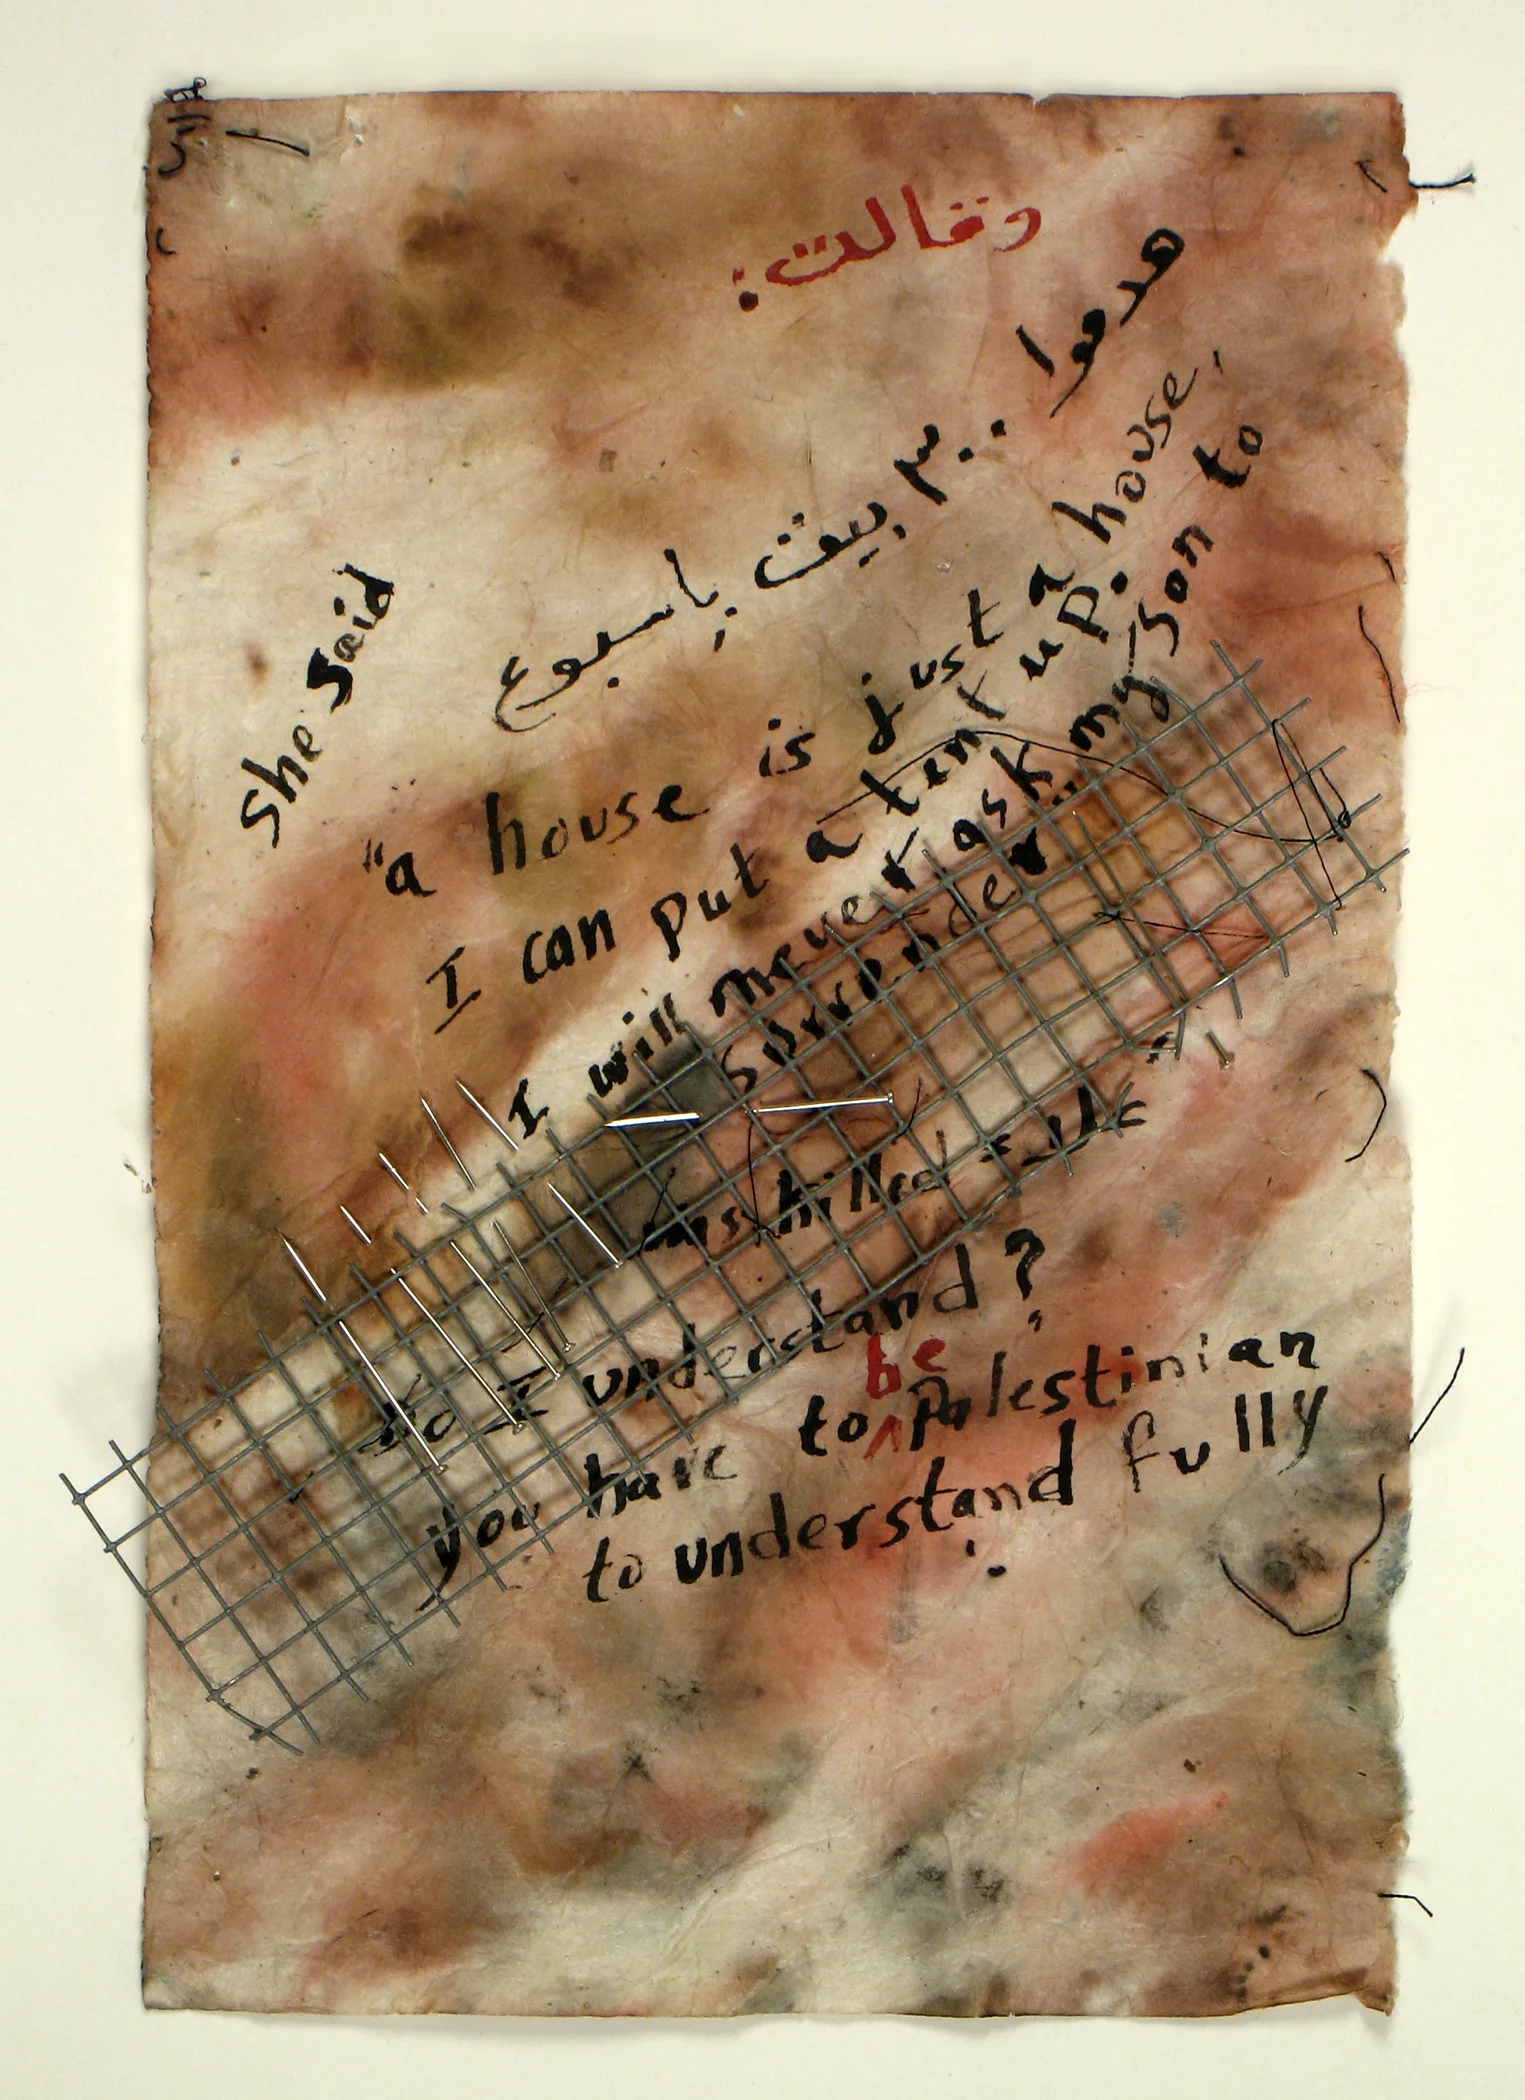 وقالت:
هدموا ..٣ بيت باسبوع
she said
"a house is just a house,
I can put a tent up.
I will never ask my son to
surrender"
was killed
Do I understand?
you have to be Palestinian
to understand fully.